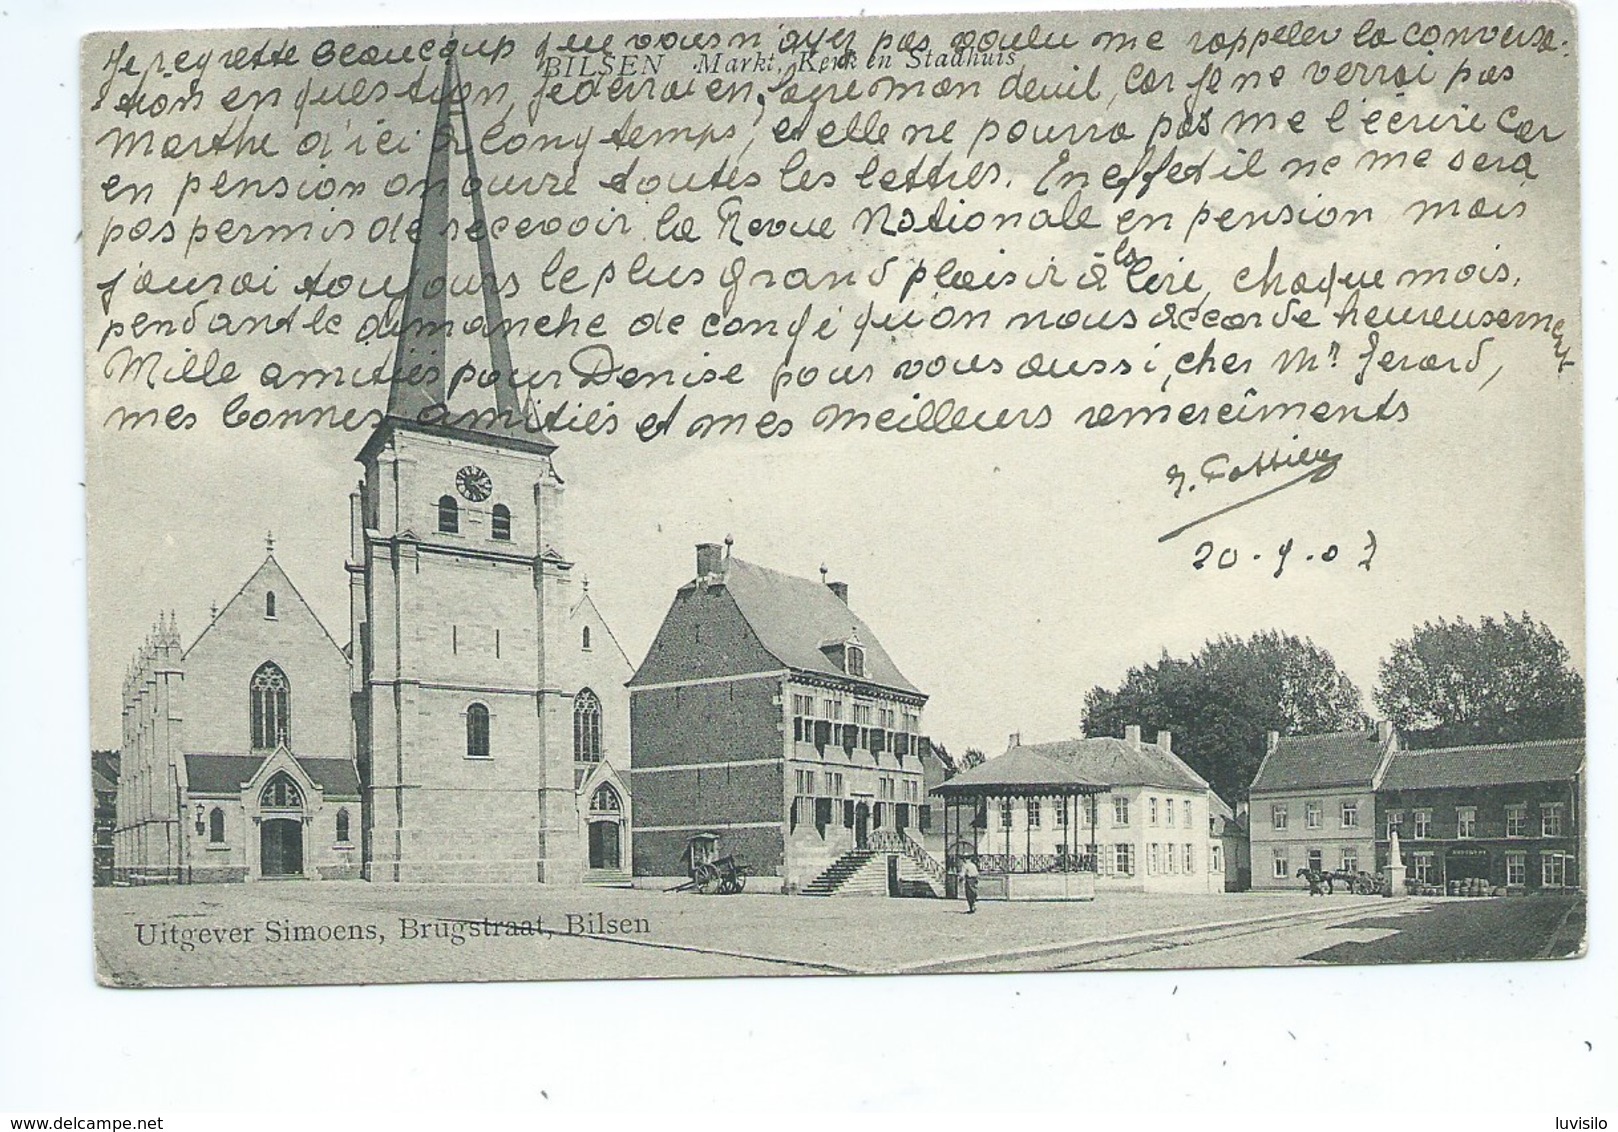 Je regrette beaucoup que vous n'ayez pas voulu me rappeler la conversa-
BILSEN Markt, Kerk en Stadhuis
tion en question, je devrai en faire mon deuil, car je ne verrai pas
Marthe d'ici à longtemps, et elle ne pourra pas me l'écrire car
en pension on ouvre toutes les lettres. En effet il ne me sera
pas permis de recevoir la Revue Nationale en pension mais
j'aurai toujours le plus grand plaisir à la lire, chaque mois,
pendant le dimanche de congé qu'on nous accorde heureusement
Mille amitiés pour Denise pour vous aussi, cher Mr. Gerard,
mes bonnes amitiés et mes meilleurs remercîments
20-9-07
Uitgever Simoens, Brugstraat, Bilsen
delcampe.net
luvisilo